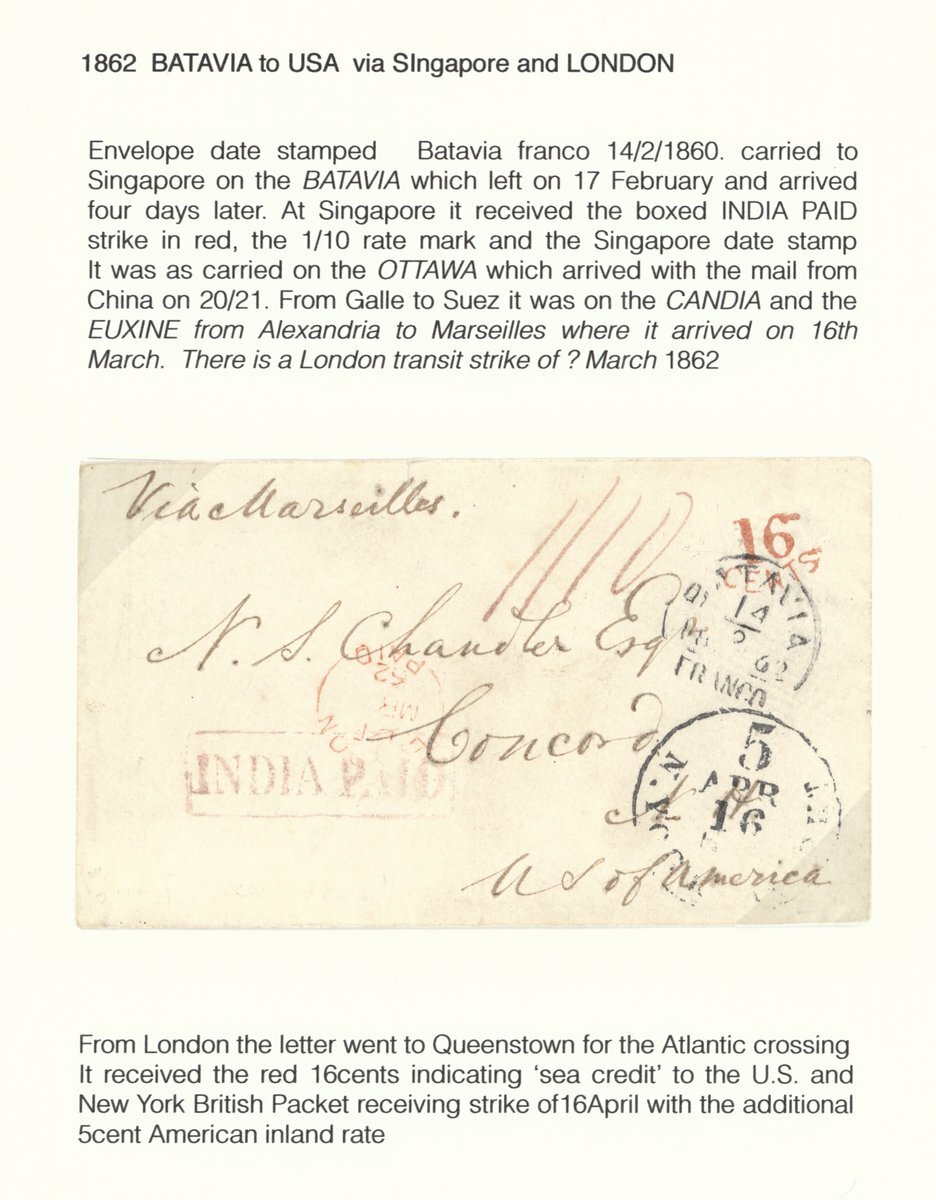 1862 BATAVIA to USA via SIngapore and LONDON
Envelope date stamped Batavia franco 14/2/1860. carried to
Singapore on the BATAVIA which left on 17 February and arrived
four days later. At Singapore it received the boxed INDIA PAID
strike in red, the 1/10 rate mark and the Singapore date stamp
It was as carried on the OTTAWA which arrived with the mail from
China on 20/21. From Galle to Suez it was on the CANDIA and the
EUXINE from Alexandria to Marseilles where it arrived on 16th
March. There is a London transit strike of ? March 1862
Via Marseilles.
1/10
16
CENTS
BATAVIA
14
2
62
FRANCO
N. S. Chandler Esq
PAID
MR
Concord
INDIA PAID
5
APR
16
N. H
U S of America
From London the letter went to Queenstown for the Atlantic crossing
It received the red 16cents indicating ‘sea credit’ to the U.S. and
New York British Packet receiving strike of16April with the additional
5cent American inland rate